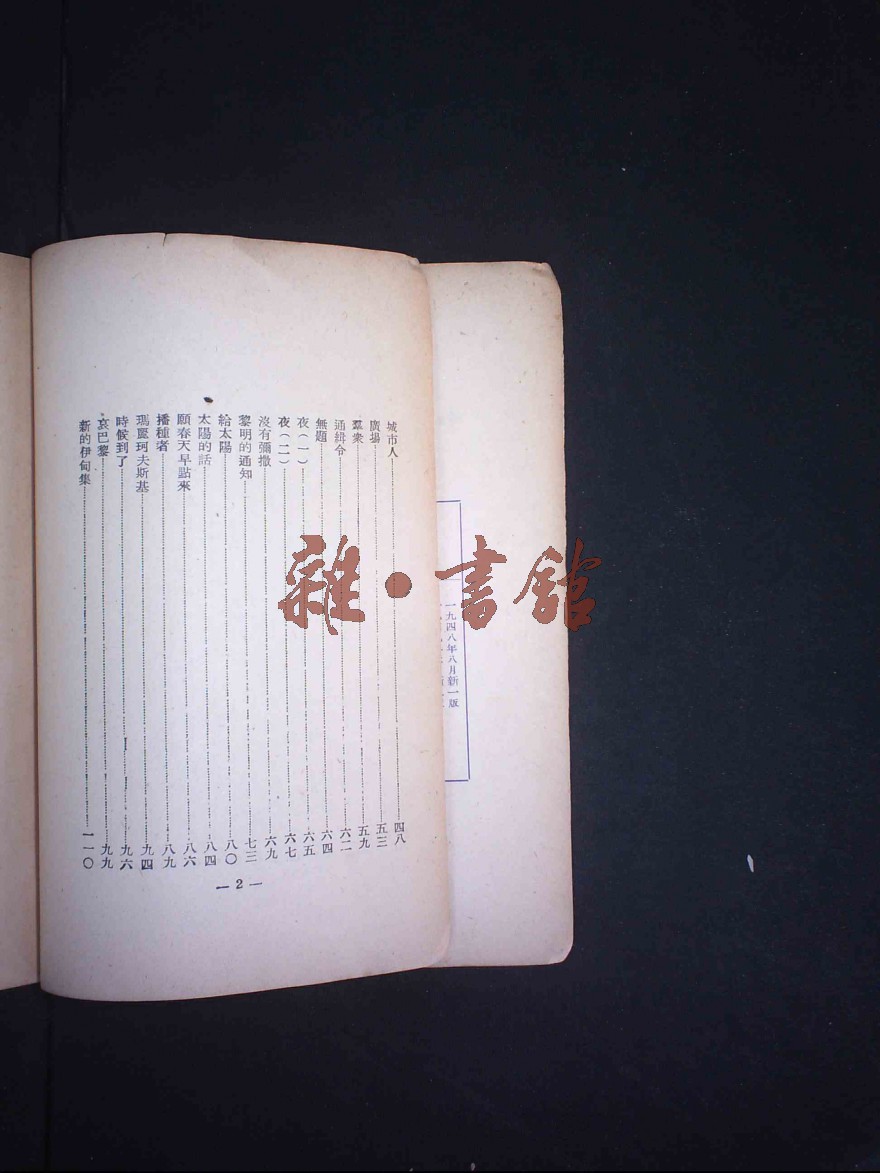 城市人……四八
廣場……五三
羣衆……五九
通緝令……六二
無題……六四
夜(一)……六五
夜(二)……六七
沒有彌撒……六九
黎明的通知……七三
給太陽……八〇
太陽的話……八四
願春天早點來……八六
播種者……八九
瑪麗珂夫斯基……九四
時候到了……九六
哀巴黎……九九
新的伊甸集……一一〇
— 2 —
一九四八年八月新一版
雜·書館